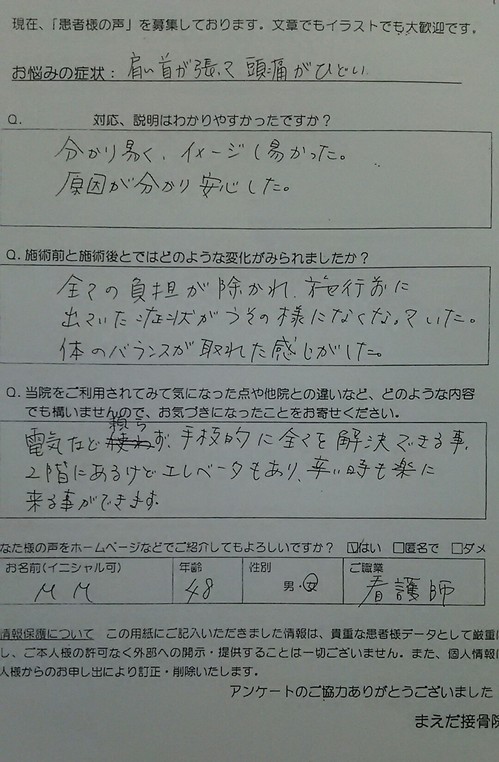 現在、「患者様の声」を募集しております。文章でもイラストでも大歓迎です。
お悩みの症状： 肩、首が張って頭痛がひどい
Q. 対応、説明はわかりやすかったですか？
分かり易く、イメージし易かった。
原因が分かり安心した。
Q. 施術前と施術後とではどのような変化がみられましたか？
全ての負担が除かれ、施行前に
出ていた症状がうその様になくなっていた。
体のバランスが取れた感じがした。
Q. 当院をご利用されてみて気になった点や他院との違いなど、どのような内容
でも構いませんので、お気づきになったことをお寄せください。
電気など頼らず、手技的に全てを解決できる事。
2階にあるけどエレベータもあり、辛い時も楽に
来る事ができます。
なた様の声をホームページなどでご紹介してもよろしいですか？ ☑はい □匿名で □ダメ
お名前(イニシャル可) 年齢 性別 ご職業
M M 48 男・女 看護師
情報保護について この用紙にご記入いただきました情報は、貴重な患者様データとして厳重に
し、ご本人様の許可なく外部への開示・提供することは一切ございません。また、個人情報は
人様からのお申し出により訂正・削除いたします。
アンケートのご協力ありがとうございました
まえだ接骨院